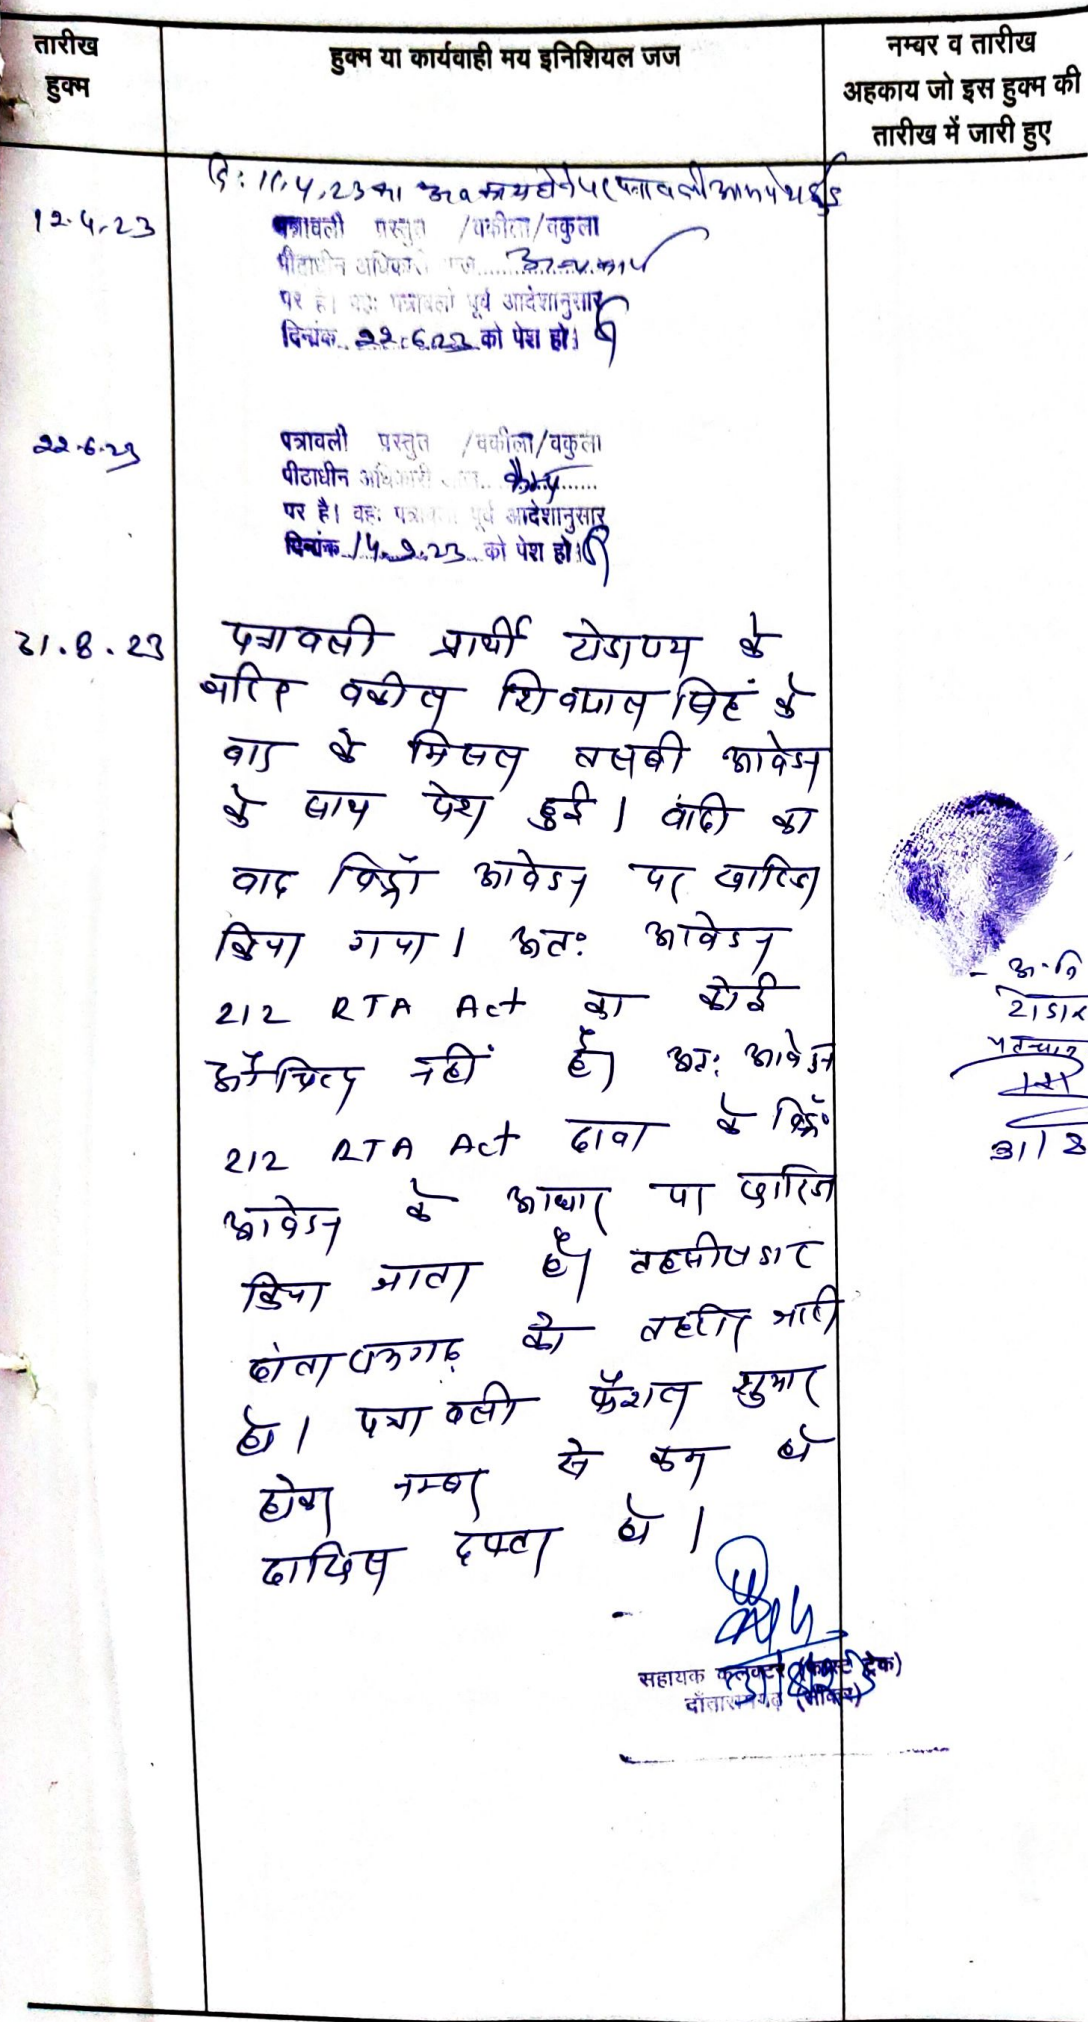 तारीख
हुक्म
हुक्म या कार्यवाही मय इनिशियल जज
नम्बर व तारीख
अहकाय जो इस हुक्म की
तारीख में जारी हुए
दि: 11.4.23 का अवकाश होने पर पत्रावली आज पेश हुई
12.4.23
पत्रावली प्रस्तुत /वकीला/वकुला
पीठाधीन अधिकारी
पर है। वह: पत्रावली पूर्व आदेशानुसार
दिनांक 22.6.23 को पेश हो।
22.6.23
पत्रावली प्रस्तुत /वकीला/वकुला
पीठाधीन अधिकारी कैम्प
पर है। वह: पत्रावली पूर्व आदेशानुसार
दिनांक 14.9.23 को पेश हो।
31.8.23
पत्रावली प्रार्थी के
जरिए वकील शिवपाल सिहं के
वाद के मिसल तलबी आवेदन
के साथ पेश हुई। वादी का
वाद विड्रॉ आवेदन पर खारिज
किया गया। अतः आवेदन
212 RTA Act का कोई
औचित्य नहीं है। अत: आवेदन
212 RTA Act दावा के विड्रॉ
आवेदन के आधार पर खारिज
किया जाता है। तहसीलदार
दांतारामगढ़ को तहरीर जारी
हो। पत्रावली फैशल शुमार
होकर नम्बर से कम हो
दाखिल दफ्तर हो।
अ.नि
31/8
सहायक कलक्टर (फास्ट ट्रेक)
दाँतारामगढ़ (सीकर)